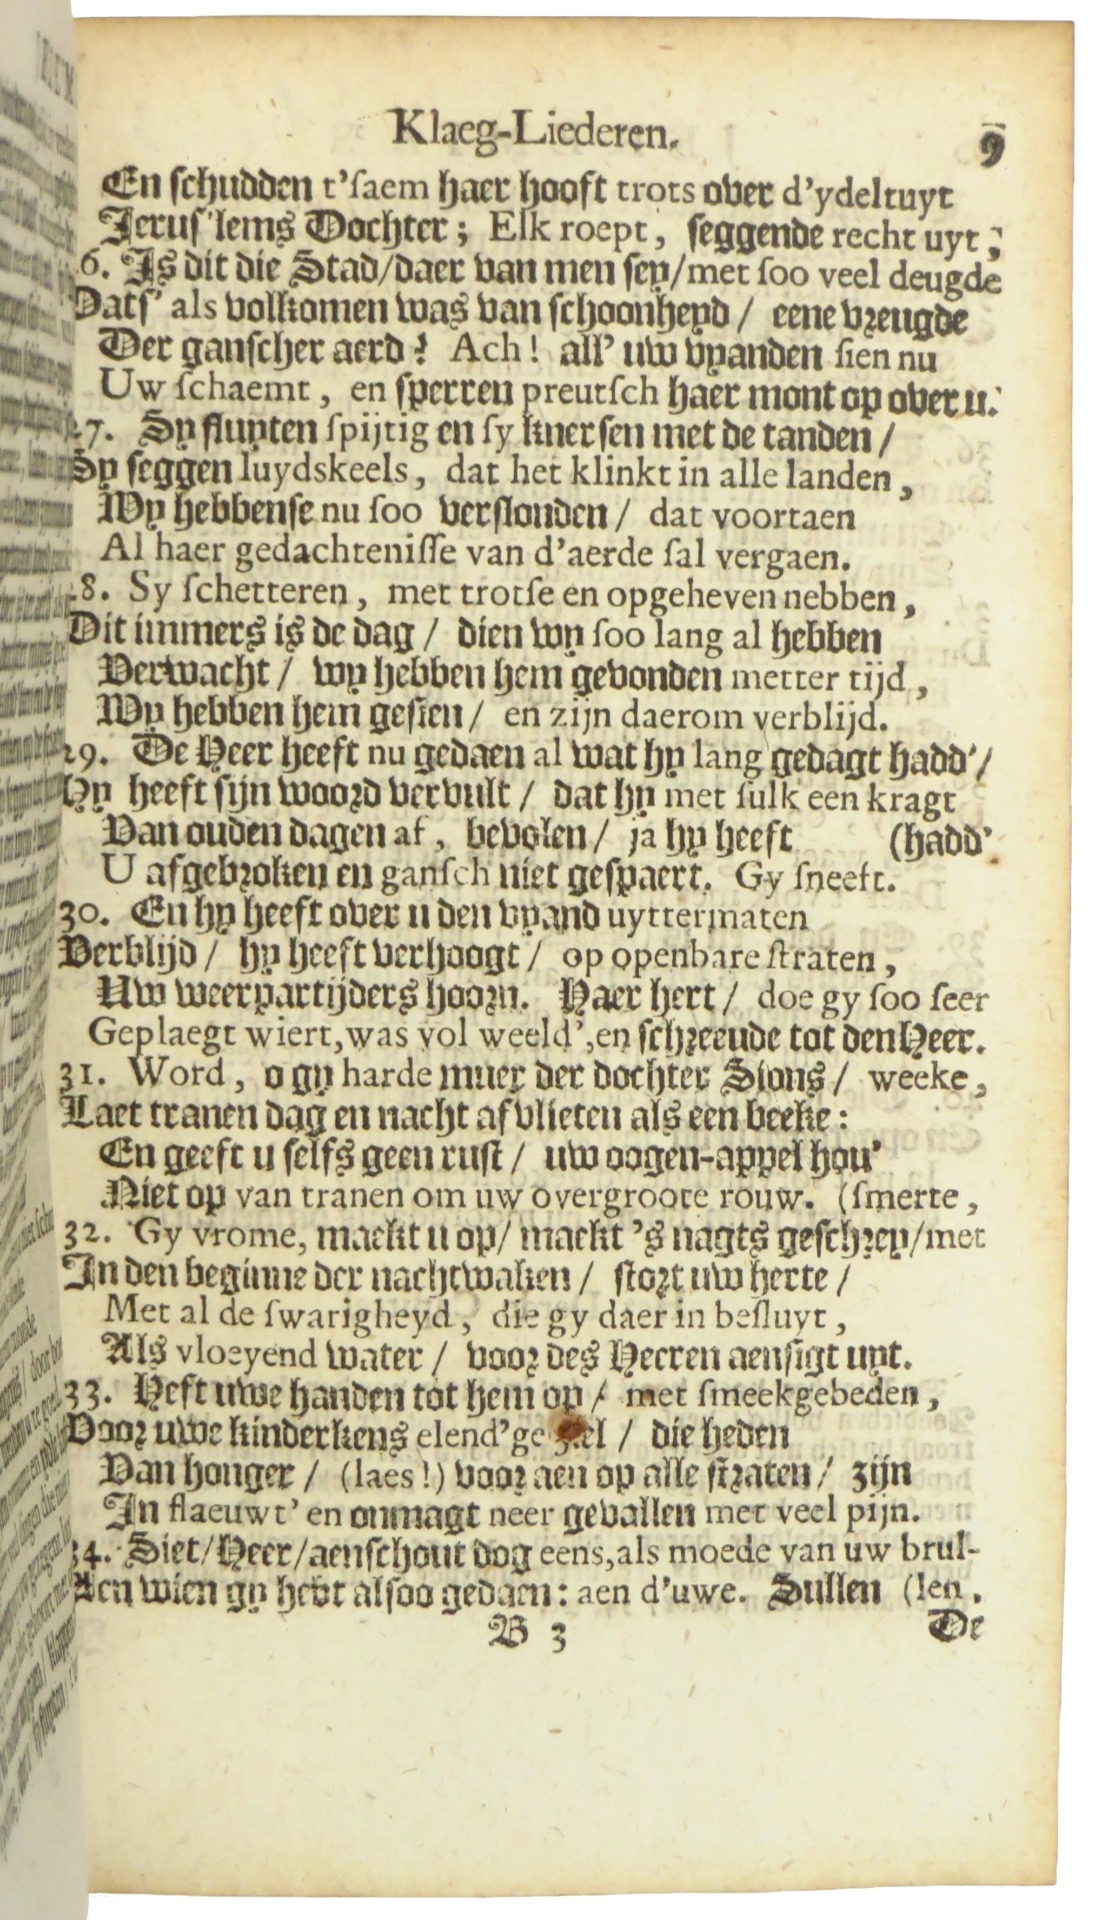 Klaeg-Liederen. 9
En schudden t'saem haer hooft trots over d'ydeltuyt
Jerus'lems Dochter; Elk roept, seggende recht uyt;
6. Is dit die Stad/daer van men sey/met soo veel deugde
Dats' als volkomen was van schoonheyd / eene vreugde
Der ganscher aerd? Ach! all' uw vyanden sien nu
Uw schaemt, en sperren preutsch haer mont op over u.
27. Sy fluyten spijtig en sy knersen met de tanden /
Sy seggen luydskeels, dat het klinkt in alle landen,
Wy hebbense nu soo verslonden / dat voortaen
Al haer gedachtenisse van d'aerde sal vergaen.
28. Sy schetteren, met trotse en opgeheven nebben,
Dit immers is de dag / dien wy soo lang al hebben
Verwacht / wy hebben hem gevonden metter tijd,
Wy hebben hem gesien / en zijn daerom verblijd.
29. De Heer heeft nu gedaen al wat hy lang gedagt hadd'/
Hy heeft sijn woord vervult / dat hy met sulk een kragt
Van ouden dagen af, bevolen / ja hy heeft (hadd'
U afgebroken en gansch niet gespaert. Gy sneeft.
30. En hy heeft over u den vyand uyttermaten
Verblijd / hy heeft verhoogt / op openbare straten,
Uw weerpartijders hoorn. Haer hert / doe gy soo seer
Geplaegt wiert, was vol weeld', en schreeude tot den Heer.
31. Word, o gy harde muer der dochter Sions / weeke,
Laet tranen dag en nacht afvlieten als een beeke:
En geeft u selfs geen rust / uw oogen-appel hou'
Niet op van tranen om uw overgroote rouw. (smerte,
32. Gy vrome, maekt u op/ maekt 's nagts geschrey/met
In den beginne der nachtwaken / stort uw herte /
Met al de swarigheyd, die gy daer in besluyt,
Als vloeyend water / voor des Heeren aensigt uyt.
33. Heft uwe handen tot hem op / met smeekgebeden,
Voor uwe kinderkens elend'ge ziel / die heden
Van honger / (laes!) voor aen op alle straten / zijn
In flaeuwt' en onmagt neer gevallen met veel pijn.
34. Siet/Heer/aenschout dog eens, als moede van uw brul-
Aen wien gy hebt alsoo gedaen: aen d'uwe. Sullen (len.
B 3 De